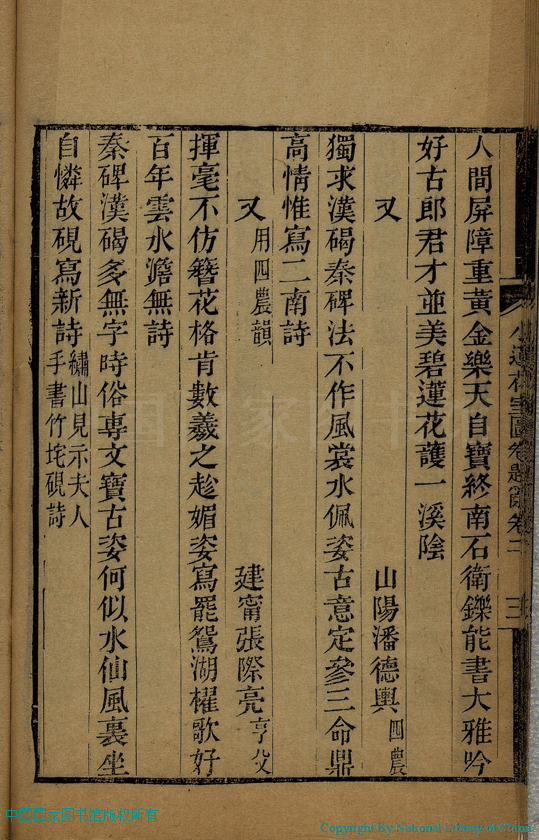 人間屏障重黃金樂天自寶終南石衛鑠能書大雅吟
好古郎君才並美碧蓮花護一溪陰
又　山陽潘德輿四農
獨求漢碣秦碑法不作風裳水佩姿古意定參三命鼎
高情惟寫二南詩
又用四農韻　建甯張際亮亨父
揮毫不仿簪花格肯數羲之趁媚姿寫罷鴛湖櫂歌好
百年雲水澹無詩
秦碑漢碣多無字時俗專文寶古姿何似水仙風裏坐
自憐故硯寫新詩繡山見示夫人
手書竹垞硯詩
小蓮花室圖卷題辭卷二
三
Copyright By National Library of China